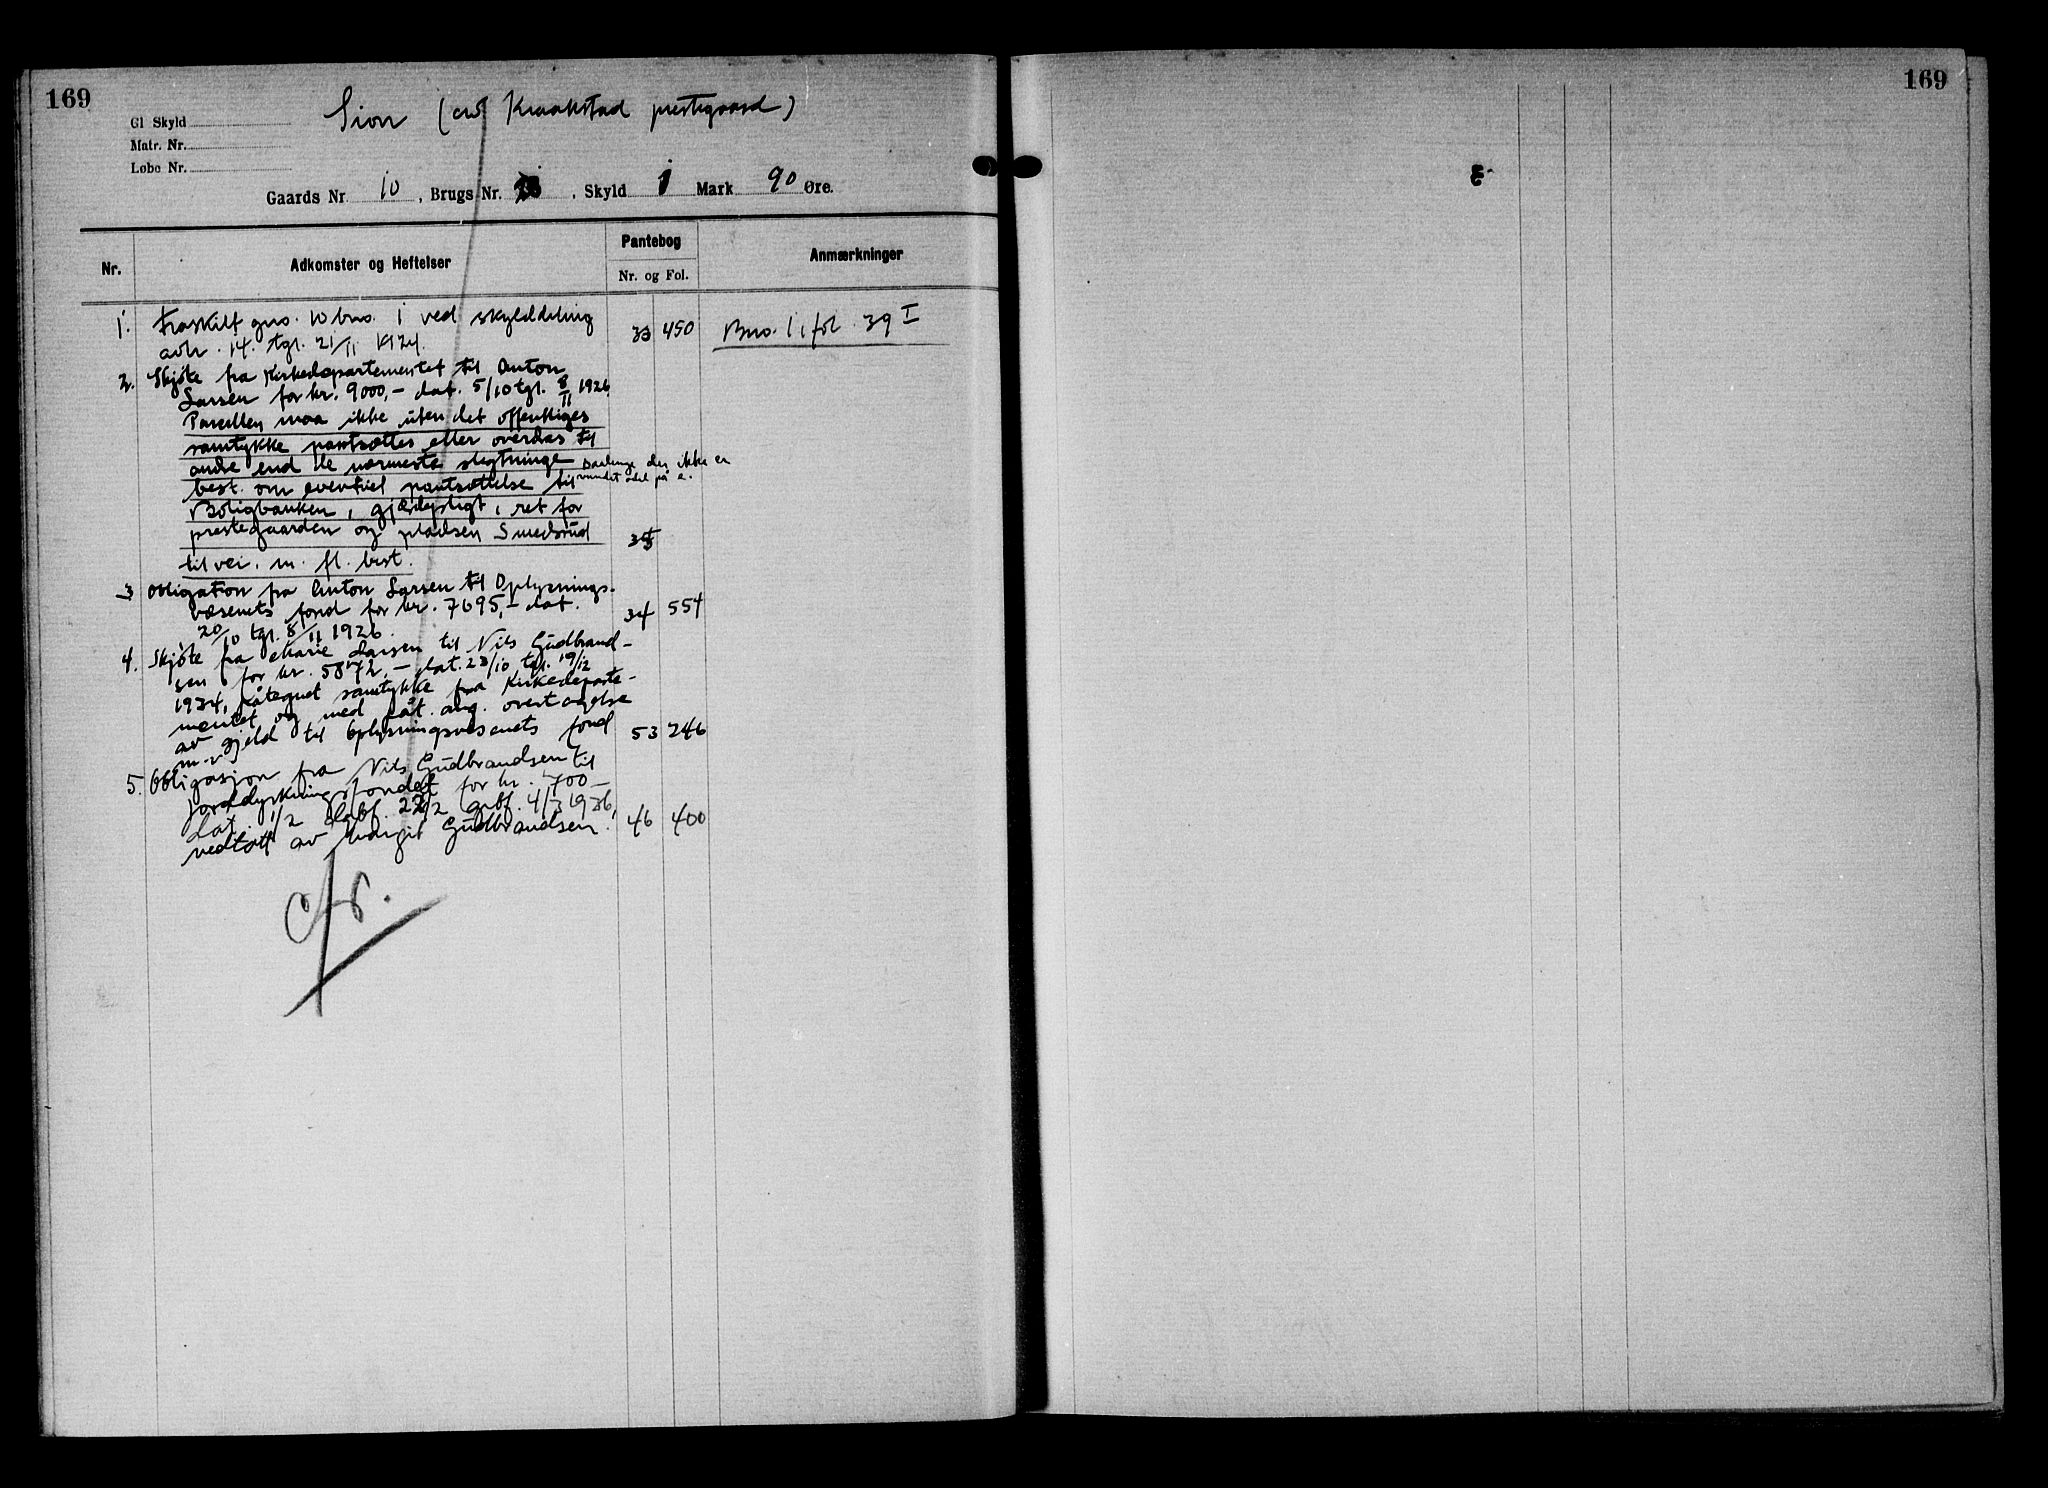 169
169
Sion (av Kraakstad prestegaard)
Gl Skyld
Matr. Nr.
Løbe Nr.
Gaards Nr 10, Brugs Nr. , Skyld 1 Mark 90 Øre.
Nr.
Adkomster og Heftelser
Pantebog
Nr. og Fol.
Anmærkninger
1. Fraskilt gno. 10 bno. 1 ved skylddeling 33 450 Bno. 1 i fol. 39 I
avh. 14. tgl. 21/11 1924.
2. Skjøte fra Kirkedepartementet til Anton
Larsen for kr. 9000,- dat. 5/10 tgl. 8/11 1926.
Parcellen maa ikke uten det offentliges
samtykke pantsættes eller overdras til
andre end de nærmeste slegtninge saalenge der ikke er
best. om eventuel pantsættelse til
Boligbanken, gjærdepligt, ret for
prestegaarden og pladsen Smedsrud
til vei. m. fl. best.
3 Obligation fra Anton Larsen til Oplysnings-
væsenets fond for kr. 7695,- dat. 34 554
20/10 tgl. 8/11 1926.
4. Skjøte fra Marie Larsen til Nils Gudbrand-
sen for kr. 5872,- dat. 23/10 tgl. 19/12
1934, påtegnet samtykke fra Kirkedeparte-
mentet og med påt. ang. overtagelse
av gjeld til Oplysningsvesenets fond 53 246
m.v.
5. Obligasjon fra Nils Gudbrandsen til
jorddyrkningsfondet for kr. 700-
dat. 1/2 dagbf. 22/2 grbf. 4/3 1936,
vedtatt av Margit Gudbrandsen. 46 400